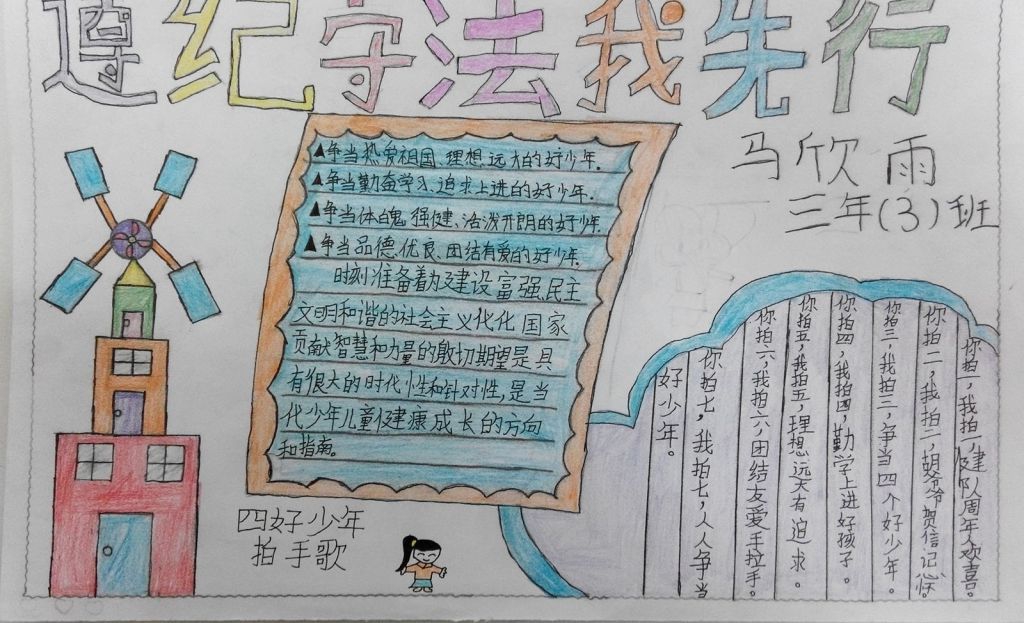 遵纪守法我先行
马欣雨
三年(3)班
▲争当热爱祖国、理想远大的好少年.
▲争当勤奋学习、追求上进的好少年.
▲争当体魄强健、活泼开朗的好少年
▲争当品德优良、团结有爱的好少年.
时刻准备着为建设富强民主
文明和谐的社会主义代化国家
贡献智慧和力量的殷切期望是具
有很大的时代性和针对性,是当
代少年儿童健康成长的方向
和指南。
四好少年
拍手歌
你拍一,我拍一,建队周年人欢喜。
你拍二,我拍二,胡爷爷贺信记心。
你拍三,我拍三,争当四个好少年。
你拍四,我拍四,勤学上进好孩子。
你拍五,我拍五,理想远大有追求。
你拍六,我拍六,团结友爱手拉手。
你拍七,我拍七,人人争当
好少年。